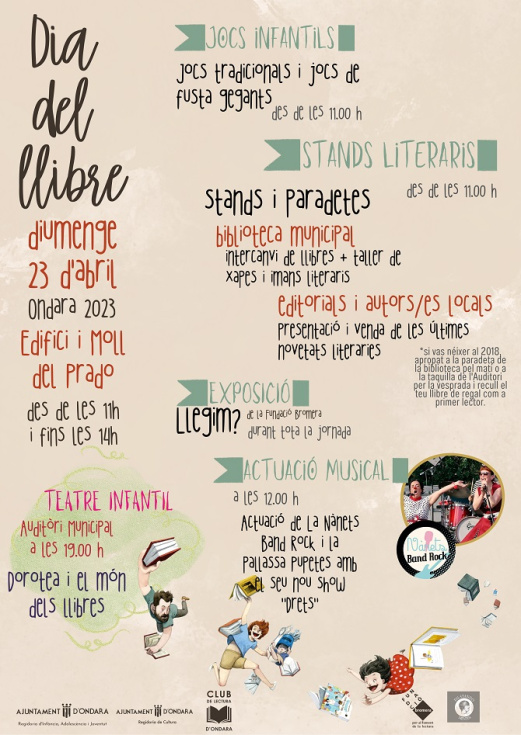 Dia
del
llibre
diumenge
23 d'abril
Ondara 2023
Edifici i Moll
del Prado
des de les 11h
i fins les 14h
JOCS INFANTILS
jocs tradicionals i jocs de
fusta gegants
des de les 11.00 h
STANDS LITERARIS
des de les 11.00 h
Stands i paradetes
biblioteca municipal
intercanvi de llibres + taller de
xapes i imans literaris
editorials i autors/es locals
presentació i venda de les últimes
novetats literaries
*si vas nèixer al 2018,
apropat a la paradeta de
la biblioteca pel matí o a
la taquilla de l'Auditori
per la vesprada i recull el
teu llibre de regal com a
primer lector.
EXPOSICIÓ
Llegim? de la Fundació Bromera
durant tota la jornada
ACTUACIÓ MUSICAL
a les 12.00 h
Actuació de la Nànets
Band Rock i la
Pallassa Pupetes amb
el seu nou show
"Drets"
Nànets
Band Rock
TEATRE INFANTIL
Auditòri Municipal
a les 19.00 h
Dorotea i el món
dels llibres
AJUNTAMENT D'ONDARA
Regidoria d'Infància, Adolescència i Joventut
AJUNTAMENT D'ONDARA
Regidoria de Cultura
CLUB
DE LECTURA
D'ONDARA
bromera